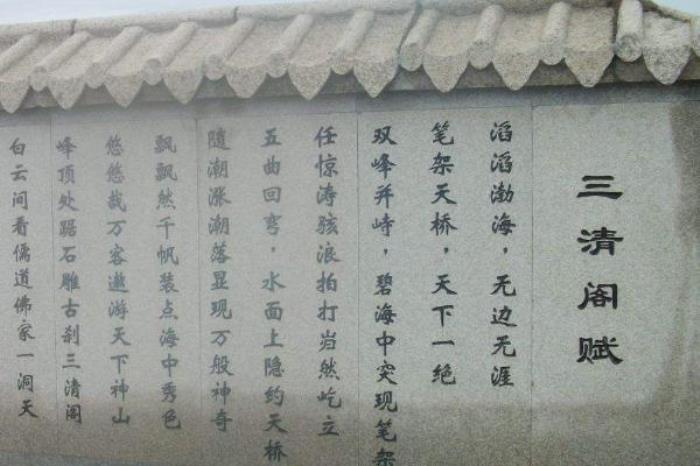 三清阁赋
滔滔渤海，无边无涯
笔架天桥，天下一绝
双峰并峙，碧海中突现笔架
任惊涛骇浪拍打岿然屹立
五曲回弯，水面上隐约天桥
随潮涨潮落显现万般神奇
飘飘然千帆装点海中秀色
悠悠哉万客遨游天下神山
峰顶处踞石雕古刹三清阁
白云间看儒道佛家一洞天